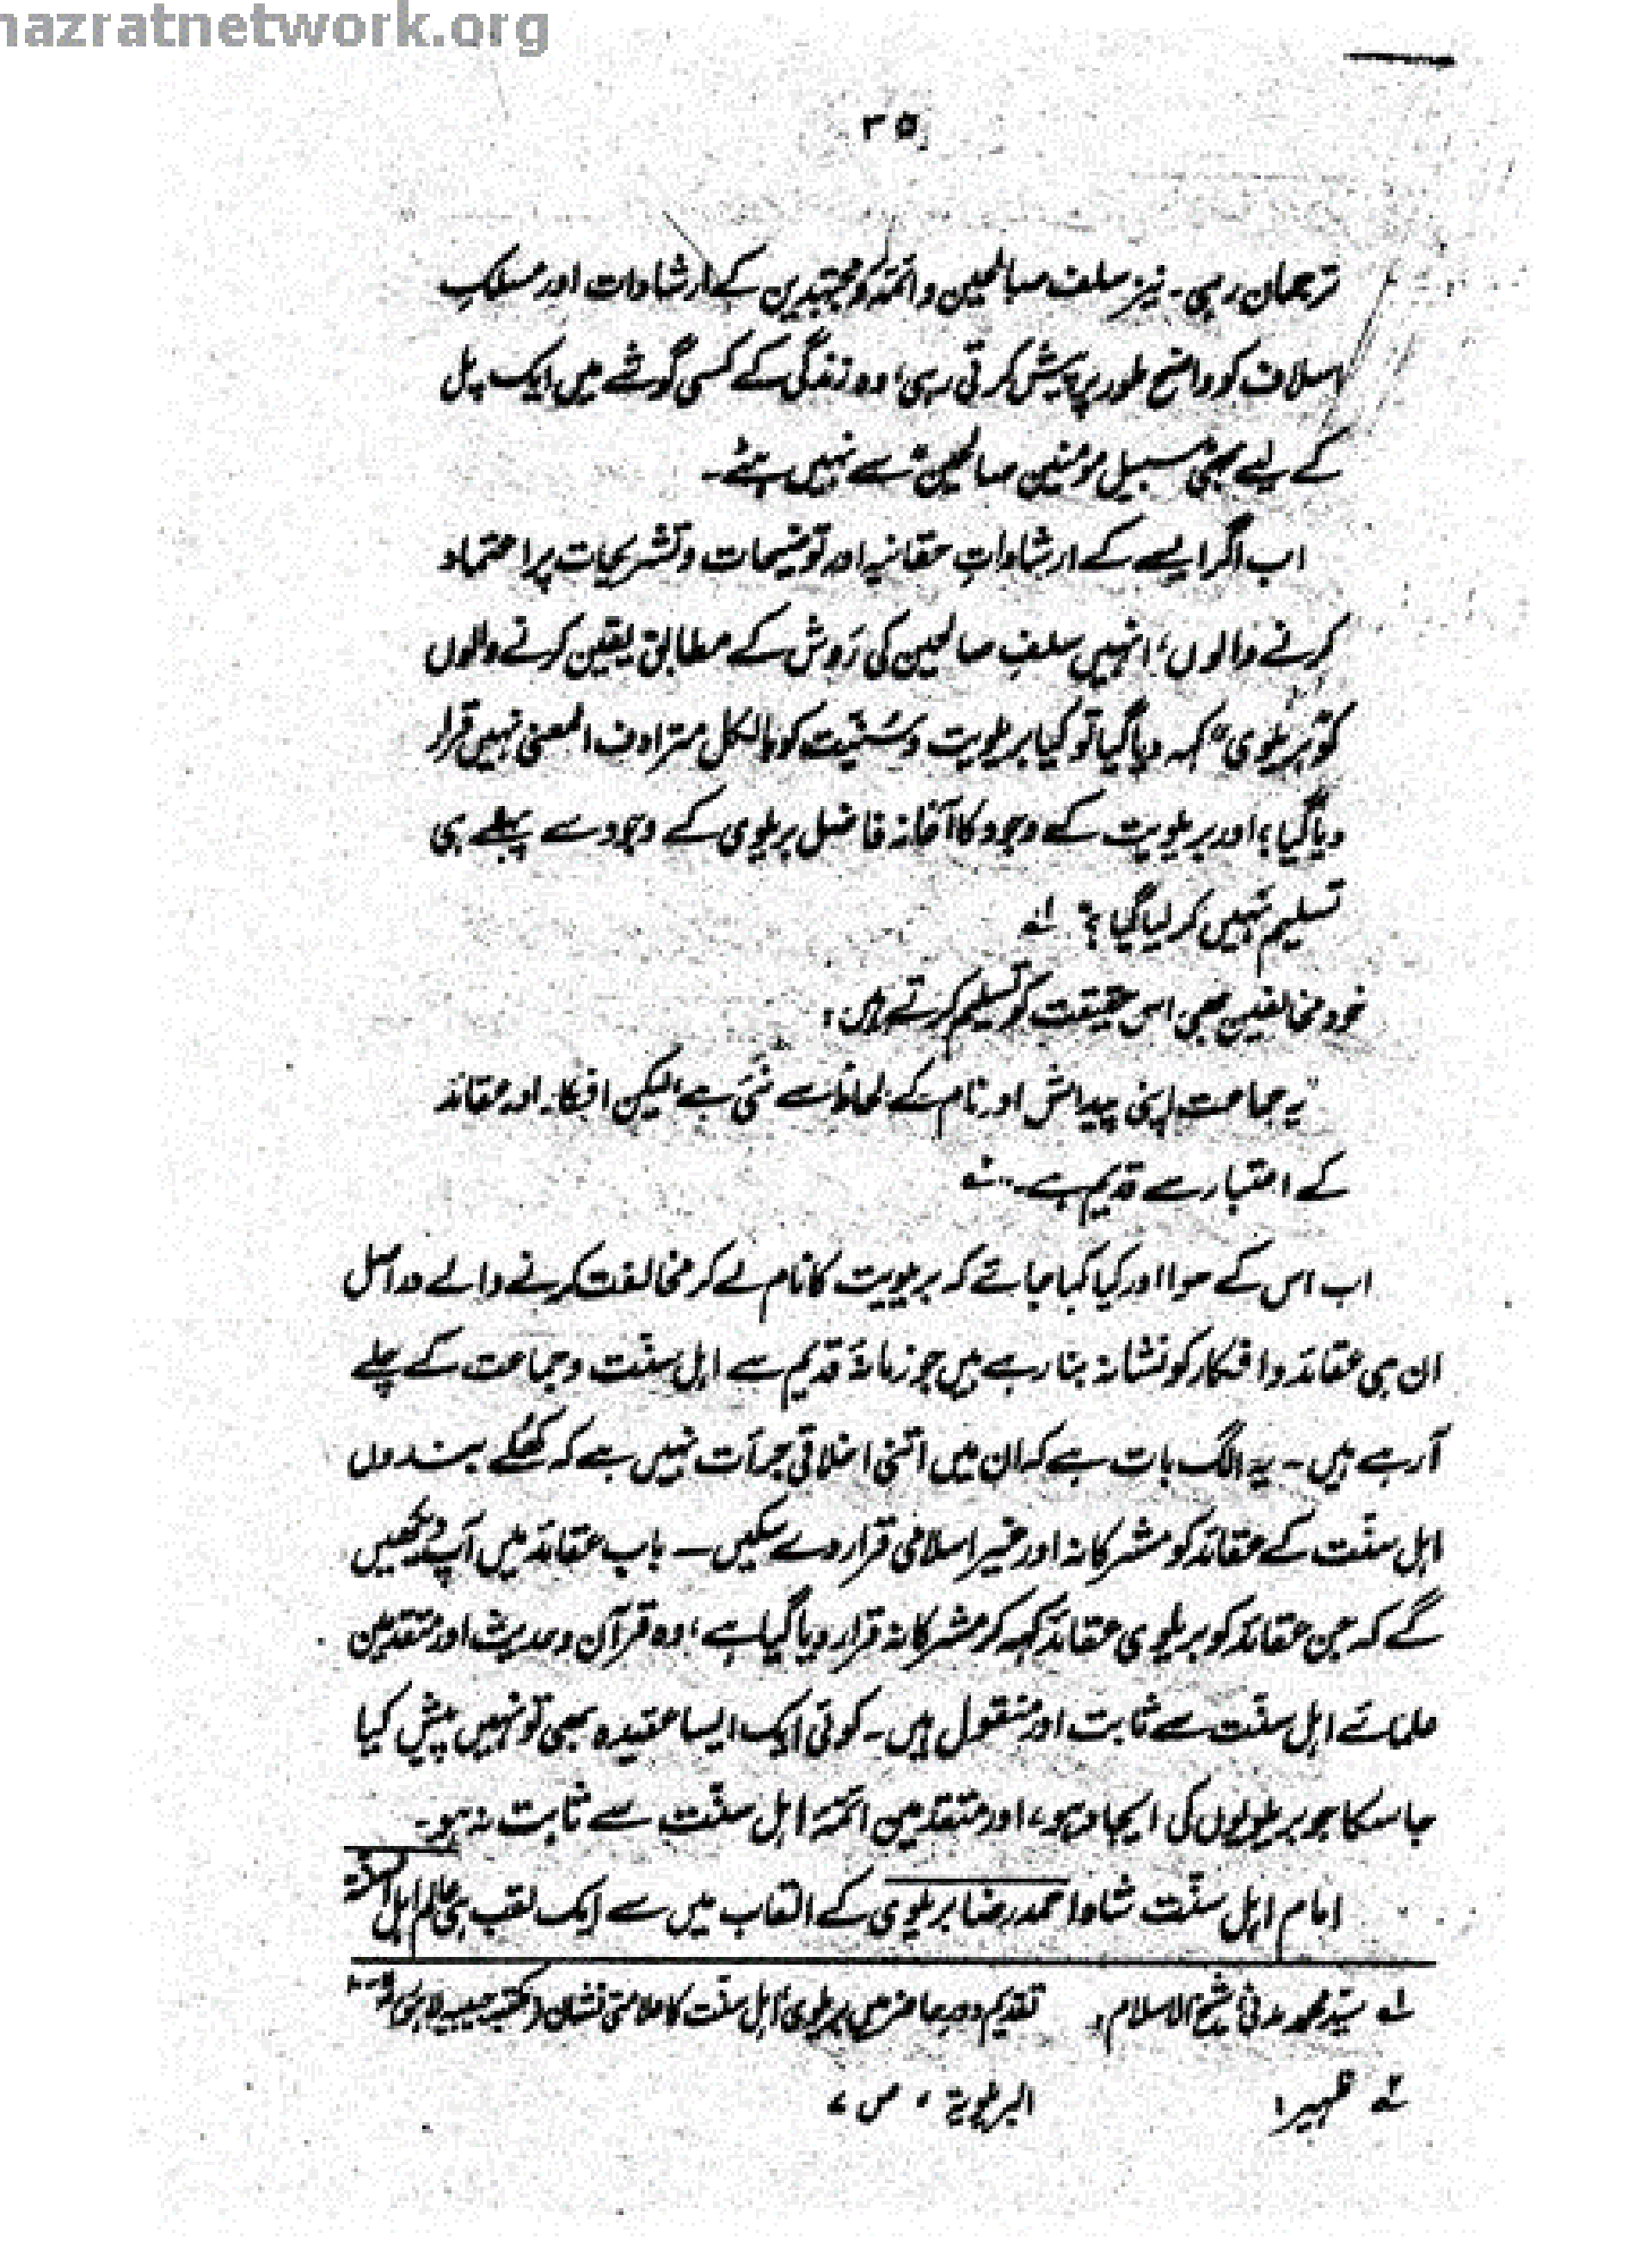 hazratnetwork.org
۳۵
ترجمان رہی۔ نیز سلف صالحین و ائمۂ مجتہدین کے ارشادات اور مسلکِ
اسلاف کو واضح طور پر پیش کرتی رہی، وہ زندگی کے کسی گوشے میں ایک پل
کے لیے بھی "سبیل مومنین صالحین" سے نہیں ہٹے۔
اب اگر ایسے کے ارشاداتِ حقانیہ اور توضیحات و تشریحات پر اعتماد
کرنے والوں، انہیں سلفِ صالحین کی رَوش کے مطابق یقین کرنے والوں
کو "بریلوی" کہہ دیا گیا تو کیا بریلویت و سُنّیت کو بالکل مترادف المعنیٰ نہیں قرار
دیا گیا؟ اور بریلویت کے وجود کا آغاز فاضل بریلوی کے وجود سے پہلے ہی
تسلیم نہیں کر لیا گیا؟" لہ
خود مخالفین بھی اس حقیقت کو تسلیم کرتے ہیں:
"یہ جماعت اپنی پیدائش اور نام کے لحاظ سے نئی ہے، لیکن افکار اور عقائد
کے اعتبار سے قدیم ہے۔" ٢ہ
اب اس کے سوا اور کیا کہا جائے کہ بریلویت کا نام لے کر مخالفت کرنے والے دراصل
ان ہی عقائد و افکار کو نشانہ بنا رہے ہیں جو زمانۂ قدیم سے اہل سنّت و جماعت کے چلے
آرہے ہیں۔ یہ الگ بات ہے کہ ان میں اتنی اخلاقی جرأت نہیں ہے کہ کُھلے بندوں
اہل سنّت کے عقائد کو مشرکانہ اور غیر اسلامی قرار دے سکیں۔ بابِ عقائد میں آپ دیکھیں
گے کہ جن عقائد کو بریلوی عقائد کہہ کر مشرکانہ قرار دیا گیا ہے، وہ قرآن و حدیث اور متقدمین
علمائے اہل سنّت سے ثابت اور منقول ہیں۔ کوئی ایک ایسا عقیدہ بھی تو نہیں پیش کیا
جا سکا جو بریلویوں کی ایجاد ہو، اور متقدمین ائمۂ اہل سنّت سے ثابت نہ ہو۔
امام اہل سنّت شاہ احمد رضا بریلوی کے القاب میں سے ایک لقب ہی عالم اہل السنۃ
لہ سیّد محمد مدنی شیخ الاسلام، تقدیم دورِ حاضر میں بریلوی، اہل سنّت کا علامتی نشان (مکتبہ حبیبیہ لاہور)
٢ہ ظہیر: البریلویۃ، ص ۷